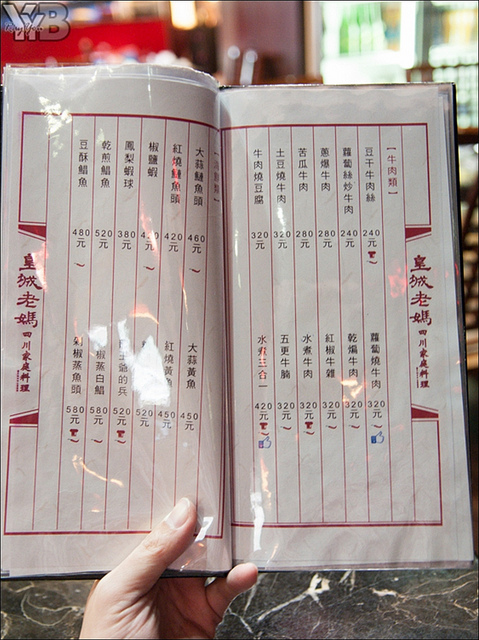 YYB
皇城老媽
四川家庭料理
【牛肉類】
豆干牛肉絲 240元
蘿蔔絲炒牛肉 240元
蔥爆牛肉 280元
苦瓜牛肉 280元
土豆燒牛肉 320元
牛肉燒豆腐 320元
蘿蔔燒牛肉 320元
乾煸牛肉 320元
紅椒牛雜 320元
水煮牛肉 320元
五更牛腩 320元
水煮三合一 420元
大蒜鰱魚頭 460元
紅燒鰱魚頭 420元
椒鹽蝦
鳳梨蝦球 380元
乾煎鯧魚 520元
豆酥鯧魚 480元
大蒜黃魚 450元
紅燒黃魚 450元
520元
王爺的兵 520元
椒蒸白鯧 580元
剁椒蒸魚頭 580元
皇城老媽
四川家庭料理